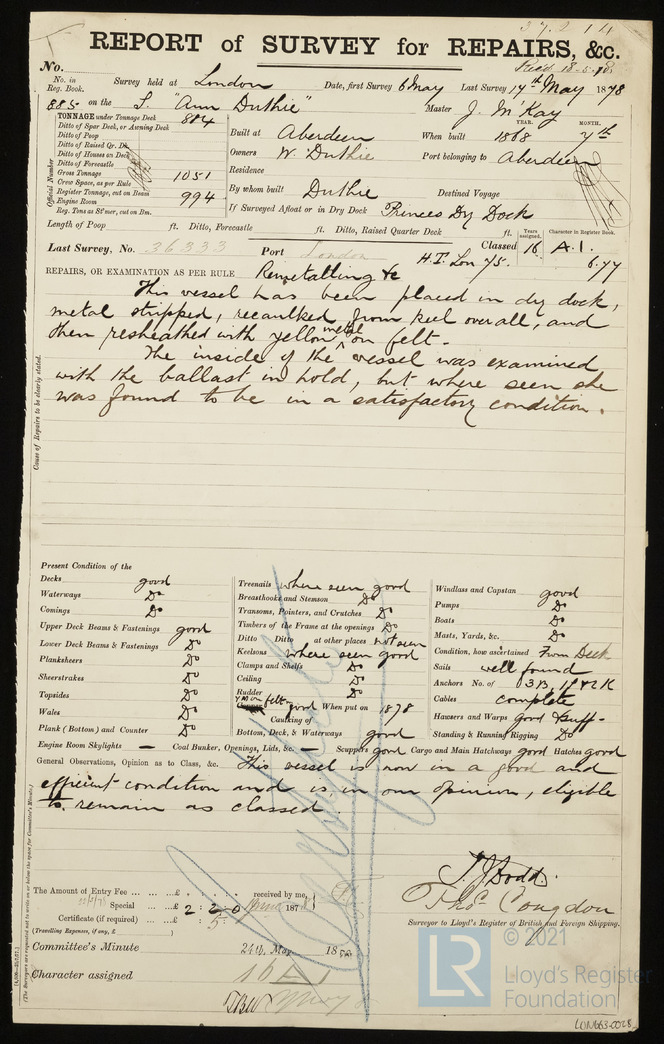 REPORT of SURVEY for REPAIRS, &c.
No. Rec'd 18-5-78
No. in Reg. Book. Survey held at London Date, first Survey 6 May Last Survey 17th May 1878
885 on the S. "Ann Duthie" Master J. McKay
TONNAGE under Tonnage Deck 884
Ditto of Spar Deck, or Awning Deck
Ditto of Poop
Ditto of Raised Qr. Dk
Ditto of Houses on Deck
Ditto of Forecastle
Gross Tonnage 1051
Crew Space, as per Rule
Register Tonnage, cut on Beam 994
Engine Room
Reg. Tons as St'mer, cut on Bm.
Official Number
Built at Aberdeen When built 1868 YEAR. MONTH. 7th
Owners W. Duthie Port belonging to Aberdeen
Residence
By whom built Duthie Destined Voyage
If Surveyed Afloat or in Dry Dock Princes Dry Dock
Length of Poop ft. Ditto, Forecastle ft. Ditto, Raised Quarter Deck ft.
Years assigned. Character in Register Book.
Last Survey, No. 36333 Port London Classed 16 A.1.
H.T. Lon 75. 6.77
REPAIRS, OR EXAMINATION AS PER RULE Remetalling &c
This vessel has been placed in dry dock,
metal stripped, recaulked from keel overall, and
then resheathed with yellow metal on felt.
The inside of the vessel was examined
with the ballast in hold, but where seen she
was found to be in a satisfactory condition.
Cause of Repairs to be clearly stated.
Present Condition of the
Decks good
Waterways Do
Comings Do
Upper Deck Beams & Fastenings good
Lower Deck Beams & Fastenings Do
Planksheers Do
Sheerstrakes Do
Topsides Do
Wales Do
Plank (Bottom) and Counter Do
Treenails where seen good
Breasthooks and Stemson Do
Transoms, Pointers, and Crutches Do
Timbers of the Frame at the openings Do
Ditto Ditto at other places not seen
Keelsons where seen good
Clamps and Shelfs Do
Ceiling Do
Rudder Do
Y.M. on felt good When put on 1878
Caulking of
Bottom, Deck, & Waterways good
Windlass and Capstan good
Pumps Do
Boats Do
Masts, Yards, &c. Do
Condition, how ascertained From Deck
Sails well found
Anchors No. of 3B, 1S & 2K
Cables complete
Hawsers and Warps good & suff.
Standing & Running Rigging Do
Engine Room Skylights — Coal Bunker, Openings, Lids, &c. — Scuppers good Cargo and Main Hatchways good Hatches good
General Observations, Opinion as to Class, &c. This vessel is now in a good and
efficient condition and is, in our opinion, eligible
to remain as classed.
T. J. Dodd.
Thos. Congdon
Surveyor to Lloyd's Register of British and Foreign Shipping.
The Amount of Entry Fee ... ... ... £ : : received by me,
Special ... ... £ 2 : 2 : 0 187
Certificate (if required) ... £ : 5 :
(Travelling Expenses, if any, £ )
Committee's Minute 24th May 18
Character assigned 16 A 1
© 2021
LR
Lloyd's Register
Foundation
LON663-0028